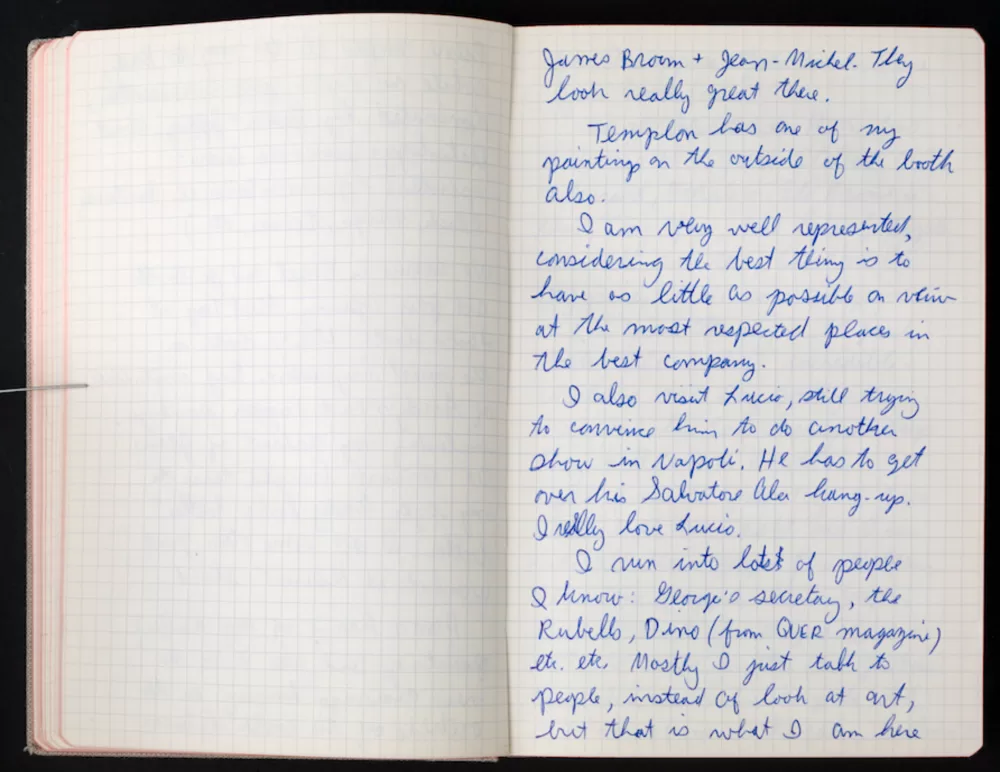 James Brown + Jean-Michel. They
look really great there.
Templon has one of my
paintings on the outside of the booth
also.
I am very well represented,
considering the best thing is to
have as little as possible on view
at the most respected places in
the best company.
I also visit Lucio, still trying
to convince him to do another
show in Napoli. He has to get
over his Salvatore Ala hang-up.
I really love Lucio.
I run into lots of people
I know: Georgio's secretary, the
Rubells, Dino (from magazine)
etc. etc. Mostly I just talk to
people, instead of look at art,
but that is what I am here